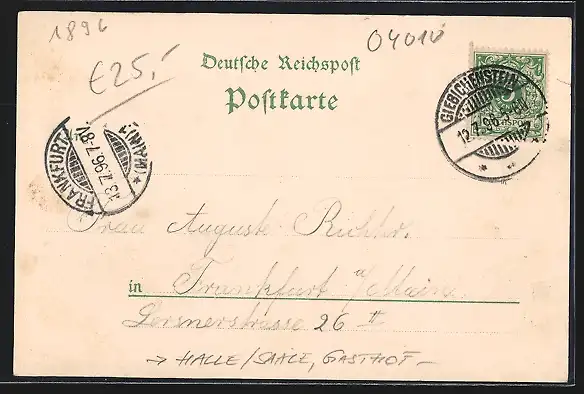 1896
04010
€25,-
Deutsche Reichspost
Postkarte
GIEBICHENSTEIN
12.7.96.
FRANKFURT
(MAIN)
13.7.96.
An
Frau Auguste Richter.
in Frankfurt a/Main
Lersnerstrasse 26 II
→ HALLE/SAALE, GASTHOF -